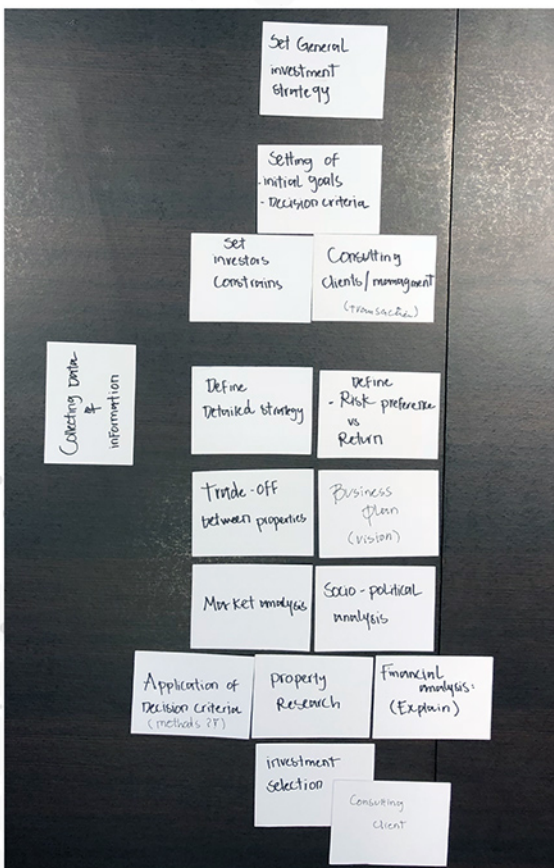 Set General
investment
strategy
Setting of
- initial goals
- Decision criteria
Set
investors
Constrains
Consulting
clients/managment
(transaction)
Collecting Data
&
information
Define
Detailed strategy
Define
- Risk preference
vs
Return
Trade-off
between properties
Business
plan
(vision)
Market analysis
Socio-political
analysis
Application of
Decision criteria
(methods ??)
property
Research
Financial
analysis:
(Explain)
investment
selection
Consulting
client